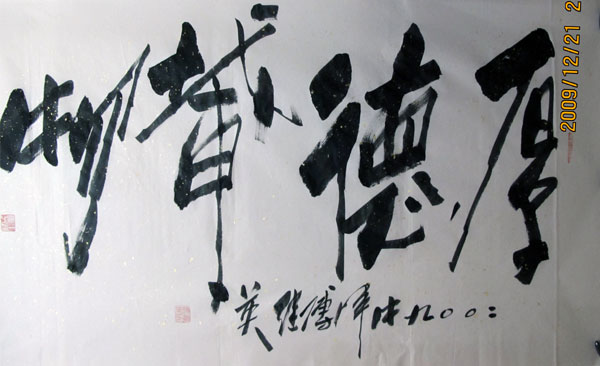 厚德載物
二〇〇九傅英
2009/12/21 2